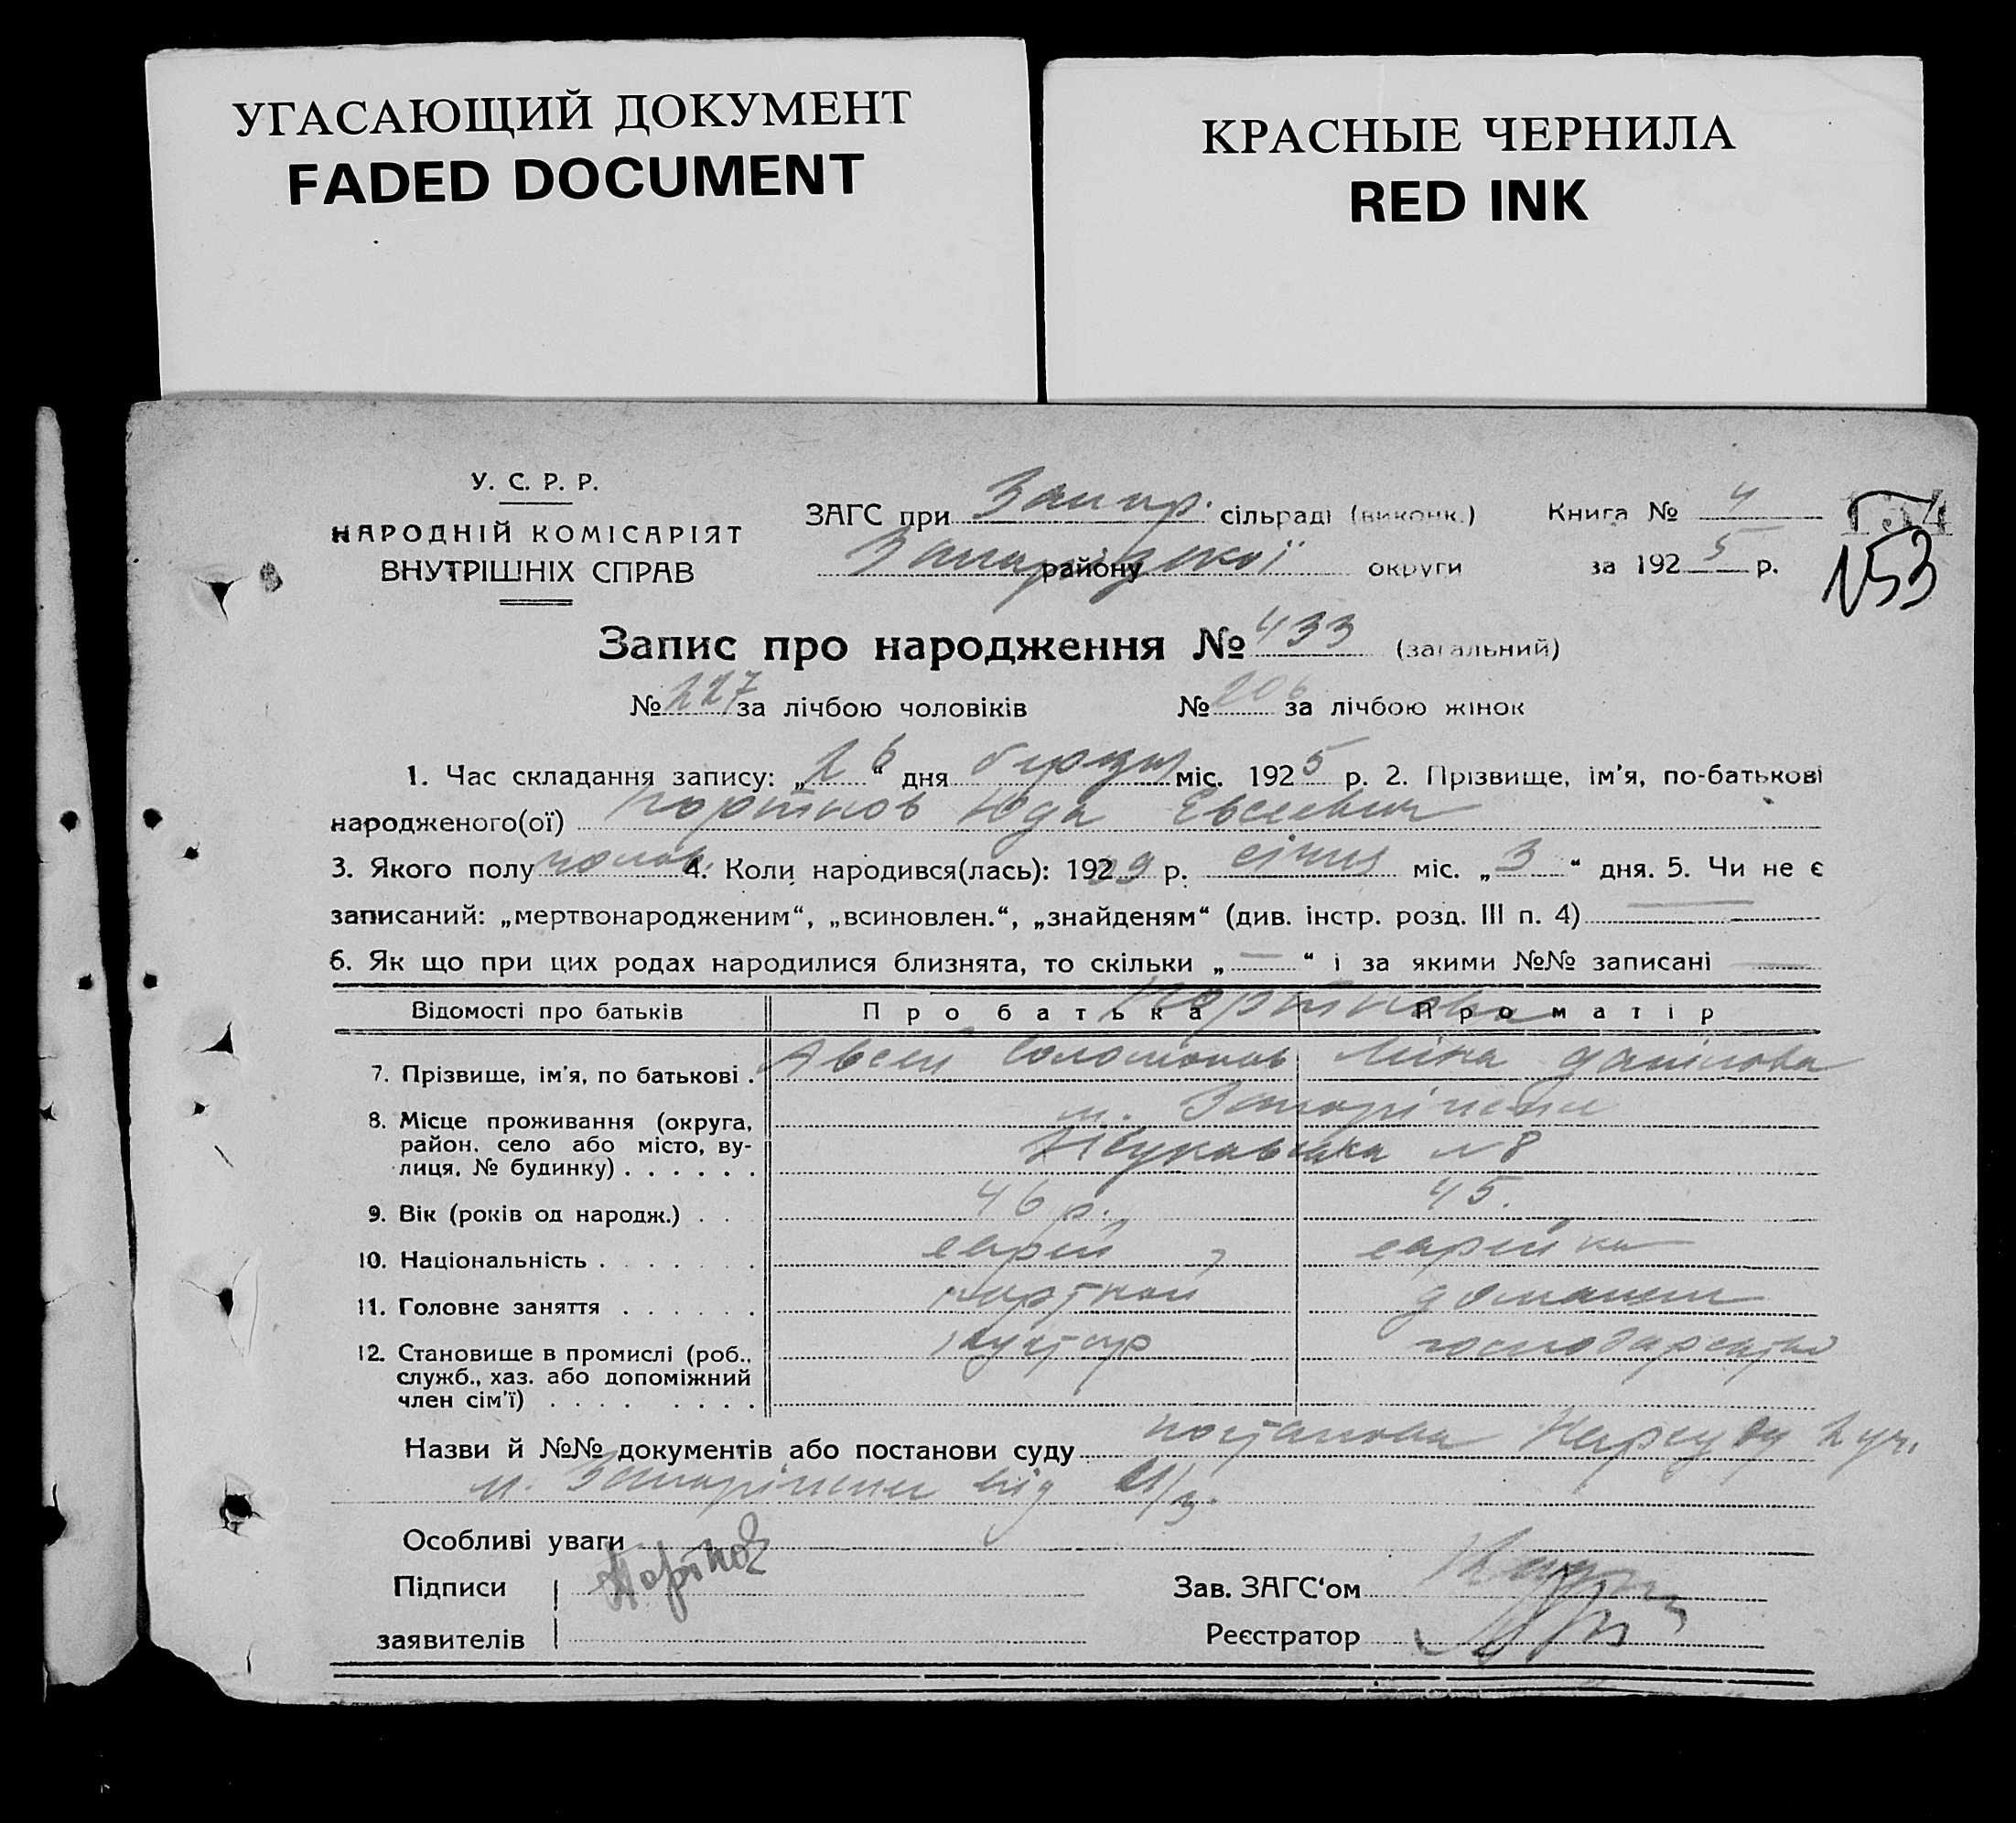 УГАСАЮЩИЙ ДОКУМЕНТ
FADED DOCUMENT
КРАСНЫЕ ЧЕРНИЛА
RED INK
У. С. Р. Р.
НАРОДНІЙ КОМІСАРІЯТ
ВНУТРІШНІХ СПРАВ
ЗАГС при Запор. сільраді (виконк.)
району округи
Книга № 4
за 1925 р.
154
153
Запис про народження № 433 (загальний)
№ 227 за лічбою чоловіків № 206 за лічбою жінок
1. Час складання запису: „26“ дня міс. 1925 р. 2. Прізвище, ім'я, по-батькові
народженого(ої) Портнов Юда Евсеевич
3. Якого полу чолов. 4. Коли народився(лась): 1909 р. січня міс. „3“ дня. 5. Чи не є
записаний: „мертвонародженим“, „всиновлен.“, „знайденям“ (див. інстр. розд. III п. 4) —
6. Як що при цих родах народилися близнята, то скільки „—“ і за якими №№ записані —
Відомості про батьків Про батька Про матір
Портнови
7. Прізвище, ім'я, по батькові . Авсей Соломонов Данілова
8. Місце проживання (округа, район, село або місто, вулиця, № будинку) . . . . . . м. Запоріжжя
Жуковська №8
9. Вік (років од народж.) . . 46 р. 45.
10. Національність . . . . . . . еврей еврейка
11. Головне заняття . . . . . . портной домашнє
12. Становище в промислі (роб., служб., хаз. або допоміжний член сім'ї) . . . . . . . . кустар господарство
Назви й №№ документів або постанови суду постанова Нарсуду 2 уч.
м. Запоріжжя від
Особливі уваги
Підписи Портнов
заявителів
Зав. ЗАГС‘ом
Реєстратор